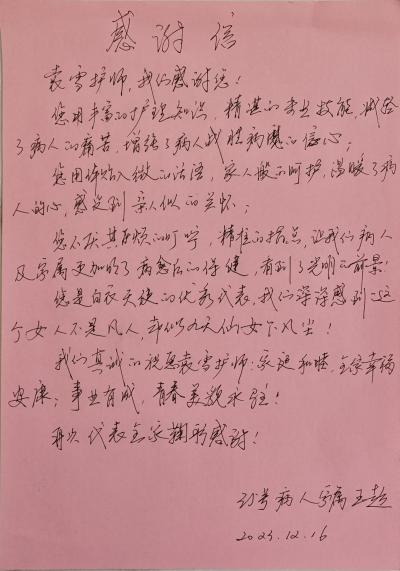 感谢信
袁雪护师，我们感谢您！
您用丰富的护理知识，精湛的专业技能，减轻
了病人的痛苦，增强了病人战胜病魔的信心；
您用体贴入微的话语，家人般的呵护，温暖了病
人的心，感受到亲人似的关怀；
您不厌其烦的叮咛，精准的指点，让我们病人
及家属更加的了病愈后的保健，看到了光明的前景！
您是白衣天使的优秀代表，我们深深感到这
个女人不是凡人，却似九天仙女下凡尘！
我们真诚的祝愿袁雪护师：家庭和睦，全家幸福
安康；事业有成，青春美貌永驻！
再次代表全家鞠躬感谢！
号病人家属王超
2023.12.16